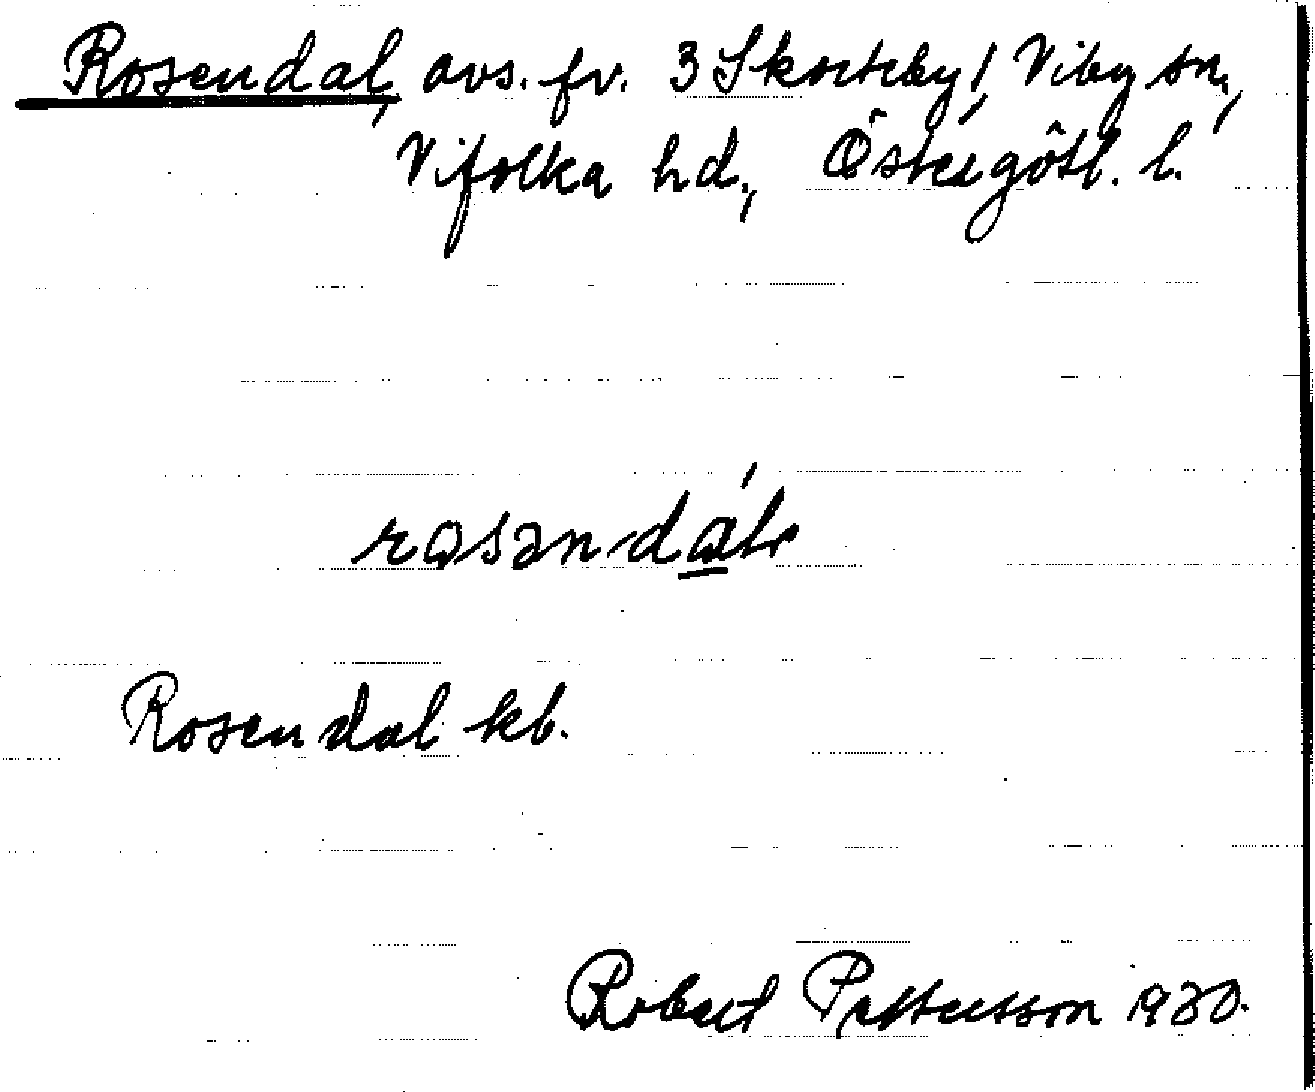 Rosendal, avs. fr. 3 Skorteby, Viby sn,
Vifolka hd., Östergötl. l.
rosəndál
Rosendal kb.
Robert Pettersson 1930.